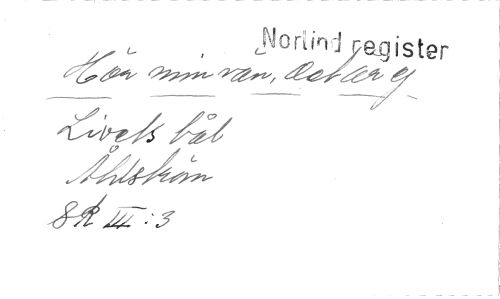 Norlind register
Hör min vän, det är ej
Livets båt
Åhlström
SR III:3